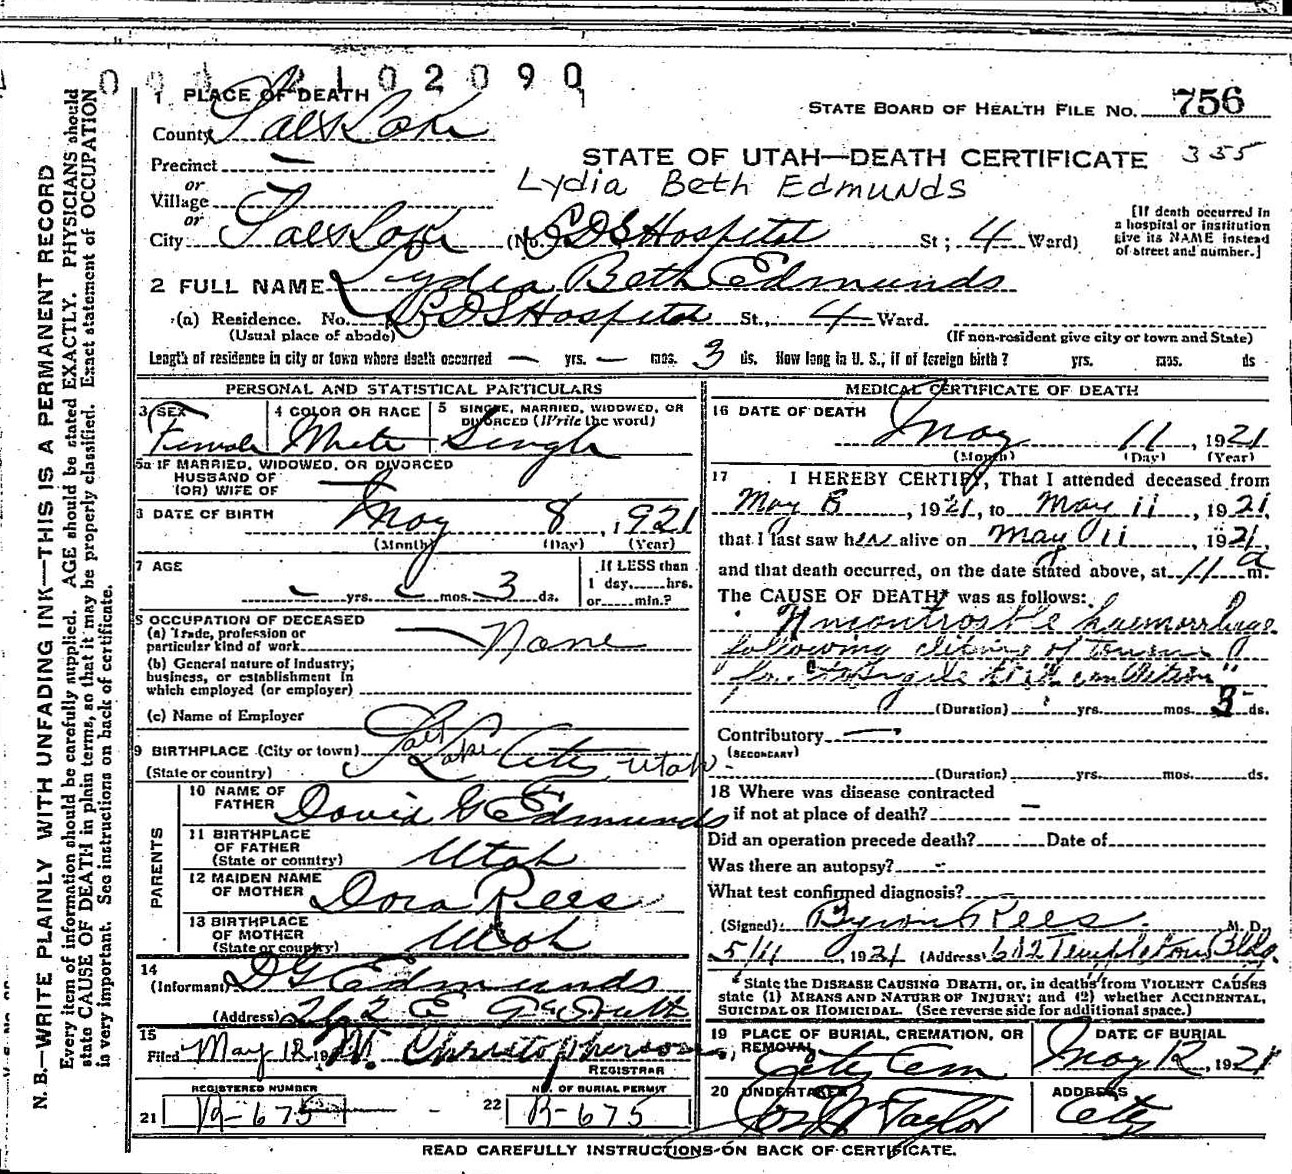 2102090
1 PLACE OF DEATH
STATE BOARD OF HEALTH FILE NO. 756
County Salt Lake
Precinct
STATE OF UTAH—DEATH CERTIFICATE 355
or
Village
Lydia Beth Edmunds
or
City Salt Lake (No. LDS Hospital St; 4 Ward)
[If death occurred in a hospital or institution give its NAME instead of street and number.]
2 FULL NAME Lydia Beth Edmunds
(a) Residence. No. LDS Hospital St., 4 Ward.
(Usual place of abode) (If non-resident give city or town and State)
Length of residence in city or town where death occurred — yrs. — mos. 3 ds. How long in U. S., if of foreign birth? yrs. mos. ds
PERSONAL AND STATISTICAL PARTICULARS
3 SEX Female
4 COLOR OR RACE White
5 SINGLE, MARRIED, WIDOWED, OR DIVORCED (Write the word) Single
5a IF MARRIED, WIDOWED, OR DIVORCED
HUSBAND OF
(OR) WIFE OF —
6 DATE OF BIRTH May 8, 1921
(Month) (Day) (Year)
7 AGE
— yrs. — mos. 3 ds.
If LESS than
1 day, hrs.
or min.?
8 OCCUPATION OF DECEASED
(a) Trade, profession or
particular kind of work None
(b) General nature of Industry,
business, or establishment in
which employed (or employer)
(c) Name of Employer
9 BIRTHPLACE (City or town) Salt Lake City, Utah
(State or country)
PARENTS
10 NAME OF FATHER David G Edmunds
11 BIRTHPLACE OF FATHER
(State or country) Utah
12 MAIDEN NAME OF MOTHER Dora Rees
13 BIRTHPLACE OF MOTHER
(State or country) Utah
14
(Informant) D G Edmunds
(Address) 262 E
15
Filed May 12, 19 W. Christopherson
REGISTRAR
REGISTERED NUMBER
21 675
NO. OF BURIAL PERMIT
22 B-675
MEDICAL CERTIFICATE OF DEATH
16 DATE OF DEATH
May 11, 1921
(Month) (Day) (Year)
17 I HEREBY CERTIFY, That I attended deceased from
May 8, 1921, to May 11, 1921,
that I last saw her alive on May 11, 1921,
and that death occurred, on the date stated above, at 11 a m.
The CAUSE OF DEATH* was as follows:
Uncontrolable haemorrhage
following cliping of tounge
for
(Duration) yrs. mos. 3 ds.
Contributory —
(SECONDARY)
(Duration) yrs. mos. ds.
18 Where was disease contracted
if not at place of death? —
Did an operation precede death? Date of
Was there an autopsy? -
What test confirmed diagnosis?
(Signed) Byron Rees M. D.
5/11, 1921 (Address) 612 Templeton Bldg.
* State the DISEASE CAUSING DEATH, or, in deaths from VIOLENT CAUSES
state (1) MEANS AND NATURE OF INJURY; and (2) whether ACCIDENTAL,
SUICIDAL OR HOMICIDAL. (See reverse side for additional space.)
19 PLACE OF BURIAL, CREMATION, OR REMOVAL
City Cem
DATE OF BURIAL
May 12, 1921
20 UNDERTAKER
Jos Wm Taylor
ADDRESS
City
READ CAREFULLY INSTRUCTIONS ON BACK OF CERTIFICATE.
N. B.—WRITE PLAINLY WITH UNFADING INK—THIS IS A PERMANENT RECORD
Every item of information should be carefully supplied. AGE should be stated EXACTLY. PHYSICIANS should
state CAUSE OF DEATH in plain terms, so that it may be properly classified. Exact statement of OCCUPATION
is very important. See instructions on back of certificate.